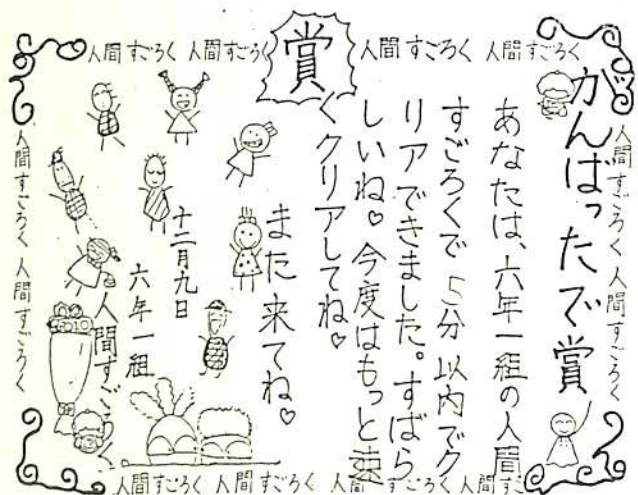 人間すごろく 人間すごろく 賞 人間すごろく 人間すごろく
人間すごろく 人間すごろく
がんばったで賞
あなたは、六年一組の人間
すごろくで 5分以内でク
リアできました。すばら
しいね♡今度はもっと速
くクリアしてね♡
また来てね♡
十二月九日
六年一組
人間すごろく
人間すごろく 人間すごろく
人間すごろく 人間すごろく 人間すごろく 人間すご